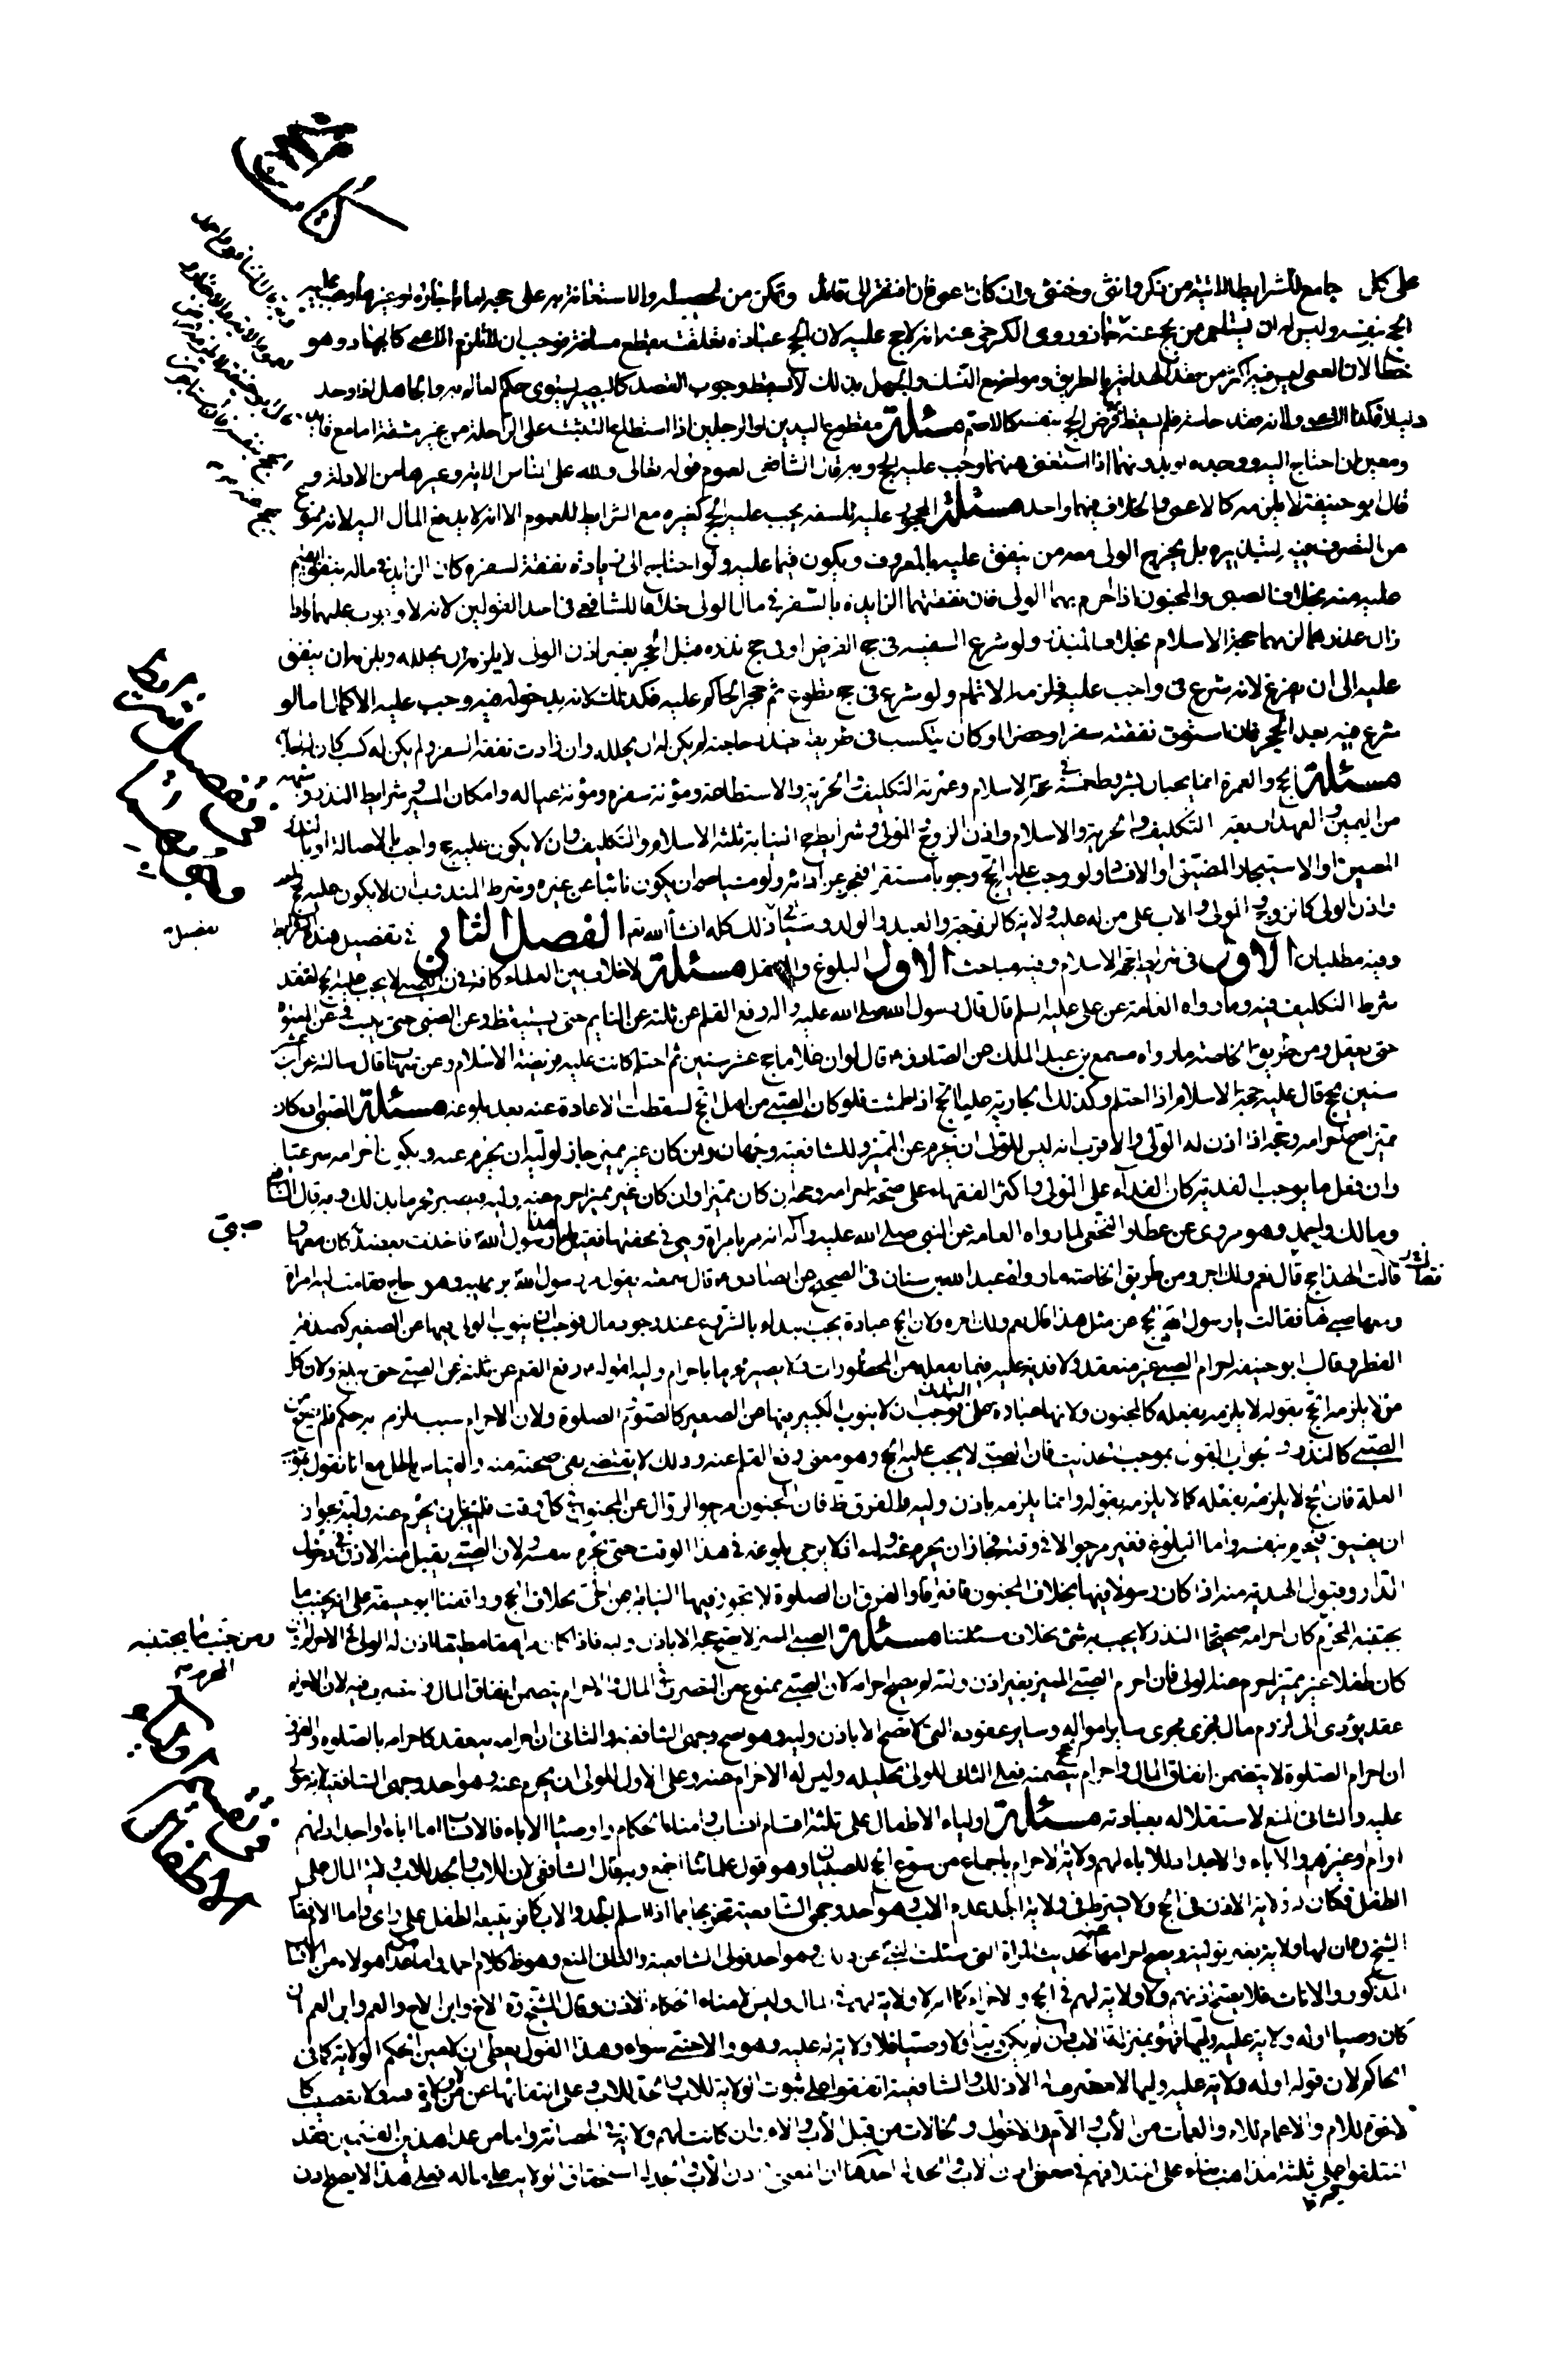 على كل جامع للشرايط الاتية من ذكر وانثى وخنثى وان كان اعمى فان افتقر الى قائد وتمكن من تحصيله والاستعانة به على حجه اما باجارة او غيرها وجب عليه
الحج بنفسه وليس له ان يستاجر من يحج عنه وروى الكرخي عنه انه لا حج عليه لان الحج عبادة تعلقت بقطع مسافة فوجب ان لا تلزم الاعمى كالجهاد وهو
خطا لان العمى ليس فيه اكثر من فقد الهداية بالطريق ومواضع النسك والجهل بذلك لا يسقط وجوب القصد كالبصير يستوي حكم العالم به والجاهل اذا وجد
دليلا فكذا الاعمى ولانه فقد حاسة فلم يسقط فرض الحج بنفسه كالاصم مسئلة مقطوع اليدين او الرجلين اذا استطاع التثبت على الراحلة من غير مشقة اما مع قايد
ومعين ان احتاج اليه ووجده او بدونهما اذا استغنى عنهما وجب عليه الحج وبه قال الشافعي لعموم قوله تعالى ولله على الناس الاية وغيرها من الادلة و
قال ابو حنيفة لا يلزمه كالاعمى والخلاف فيهما واحد مسئلة المحجور عليه للسفه يجب عليه الحج كغيره مع الشرايط للعموم الا انه لا يدفع المال اليه لانه ممنوع
من التصرف فيه لتبذيره بل يخرج الولي معه من ينفق عليه بالمعروف ويكون قيما عليه ولو احتاج الى زيادة نفقة لسفره كان الزايد في ماله ينفق
عليه منه بخلاف الصبي والمجنون اذا احرم بهما الولي فان نفقتهما الزايدة بالسفر في مال الولي خلافا للشافعي في احد القولين لانه لا وجوب عليهما واذا
زال عذرهما لزمهما حجة الاسلام بخلاف المبذر ولو شرع السفيه في حج الفرض او في حج نذره قبل الحجر بغير اذن الولي لا يلزمه ان يحلله ويلزمه ان ينفق
عليه الى ان يفرغ لانه شرع في واجب عليه فلزمه الاتمام ولو شرع في حج تطوع ثم حجر الحاكم عليه فكذلك لانه بدخوله فيه وجب عليه الاكمال اما لو
شرع فيه بعد الحجر فان استوت نفقته سفرا وحضرا او كان يتكسب في طريقه قدر حاجته لم يكن له ان يحلله وان زادت نفقة السفر ولم يكن له كسب كان له احلاله
مسئلة الحج والعمرة انما يجبان بشروط خمسة في حجة الاسلام وعمرته التكليف والحرية والاستطاعة ومؤنة سفره ومؤنة عياله وامكان المسير وشرايط النذر وشبهه
من اليمين والعهد اربعة التكليف والحرية والاسلام واذن الزوج والمولى وشرايط النيابة ثلثة الاسلام والتكليف وان لا يكون عليه حج واجب بالاصالة او بالنذر
المعين او الاستيجار المضيق او الافساد ولو وجب عليه الحج وجوبا مستقرا فعجز عن ادائه ولو مشيا صح ان يكون نائبا عن غيره وشرط المندوب ان لا يكون عليه حج واجب
واذن الولي كالزوج والمولى والاب على من له عليه ولاية كالزوجة والعبد والولد وسياتي ذلك كله ان شاء الله تعالى الفصل الثاني في تفصيل هذه الشرايط
وفيه مطلبان الاول في شرايط حجة الاسلام وفيه مباحث الاول البلوغ والعقل مسئلة لا خلاف بين العلماء كافة في ان الصبي لا يجب عليه الحج لفقد
شرط التكليف فيه وما رواه العامة عن علي عليه السلم قال قال رسول الله صلى الله عليه واله رفع القلم عن ثلثة عن النايم حتى يستيقظ وعن الصبي حتى يشب وعن المعتوه
حتى يعقل ومن طريق الخاصة ما رواه مسمع بن عبد الملك عن الصادق ع قال لو ان غلاما حج عشر سنين ثم احتلم كانت عليه فريضة الاسلام وعن شهاب قال سالته عن ابن عشر
سنين يحج قال عليه حجة الاسلام اذا احتلم وكذلك الجارية عليها الحج اذا طمثت فلو كان الصبي من اهل الحج لسقطت الاعادة عنه بعد بلوغه مسئلة الصبي ان كان
مميزا صح احرامه وحجه اذا اذن له الولي والاقرب انه ليس للولي ان يحرم عن المميز وللشافعية وجهان وان كان غير مميز جاز لوليه ان يحرم عنه ويكون احرامه شرعيا
وان فعل ما يوجب الفدية كان الفداء على الولي واكثر الفقهاء على صحة احرامه وحجه ان كان مميزا وان كان غير مميز احرم عنه وليه فيصير محرما بذلك وبه قال الشافعي
ومالك واحمد وهو مروي عن عطا والنخعي لما رواه العامة عن النبي صلى الله عليه واله انه مر بامراة وهي في محفتها فقيل لها هذا رسول الله فاخذت بعضد صبي كان معها
فقالت الهذا حج قال نعم ولك اجر ومن طريق الخاصة ما رواه عبد الله بن سنان في الصحيح عن الصادق ع قال سمعته يقول مر رسول الله برويثة وهو حاج فقامت اليه امراة
ومعها صبي لها فقالت يا رسول الله ايحج عن مثل هذا قال نعم ولك اجره ولان الحج عبادة يجب ابتداء بالشرع عند وجود مال فوجب ان ينوب الولي فيها عن الصغير كصدقة
الفطر وقال ابو حنيفة احرام الصبي غير منعقد ولا فدية عليه فيما يفعله من المحظورات ولا يصير محرما باحرام وليه لقوله ع رفع القلم عن ثلثة عن الصبي حتى يبلغ ولان كل
من لا يلزمه الحج بقوله لا يلزمه بفعله كالمجنون ولانها عبادة على البدن فوجب ان لا ينوب الكبير فيها عن الصغير كالصوم والصلوة ولان الاحرام سبب يلزم به حكم فلم يصح من
الصبي كالنذر والجواب القول بموجب الحديث فان الصبي لا يجب عليه الحج وهو معنى رفع القلم عنه وذلك لا يقتضي نفي صحته منه والقياس باطل مع انا نقول بموجب
العلة فان الحج لا يلزمه بفعله كما لا يلزمه بقوله وانما يلزمه باذن وليه والفرق ظ فان الجنون مرجو الزوال عن المجنون في كل وقت فلم يجز ان يحرم عنه وليه لجواز
ان يفيق فيحرم بنفسه واما البلوغ فغير مرجو الا في وقته فجاز ان يحرم عنه وليه اذ لا يرجى بلوغه في هذا الوقت حتى يحرم بنفسه ولان الصبي يقبل منه الاذن في دخول
الدار وقبول الهدية منه اذا كان رسولا فيها بخلاف المجنون فافترقا والفرق ان الصلوة لا تجوز فيها النيابة عن الحي بخلاف الحج ووافقنا ابو حنيفة على انه يجنب ما
يجتنبه المحرم كان احرامه صحيحا والنذر لا يجب به شئ بخلاف مسئلتنا مسئلة الصبي المميز لا يصح حجه الا باذن وليه فاذا كان مراهقا مطيقا اذن له الولي في الاحرام وان
كان طفلا غير مميز احرم عنه الولي فان احرم الصبي المميز بغير اذن وليه لم يصح احرامه لان الصبي ممنوع من التصرف في المال والاحرام يتضمن انفاق المال والتصرف فيه لان الاحرام
عقد يؤدي الى لزوم مال فجرى مجرى ساير امواله وساير عقوده التي لا تصح الا باذن وليه وهو اصح وجهي الشافعية والثاني ان احرامه ينعقد كاحرامه بالصلوة والفرق
ان احرام الصلوة لا يتضمن انفاق المال واحرام الحج يتضمنه فعلى الثاني للولي تحليله وليس له الاحرام عنه وعلى الاول للولي ان يحرم عنه وهو احد وجهي الشافعية لانه مولى
عليه والثاني المنع لاستقلاله بعبادته مسئلة اولياء الاطفال على ثلثة اقسام انساب وامناء الحكام واوصياء الاباء فالانساب اما اباء او اجداد لهم
او ام وغيرهم والاباء والاجداد للاباء لهم ولاية الاحرام باجماع من سوغ الحج للصبيان وهو قول علمائنا اجمع وبه قال الشافعي لان للاب والجد للاب ولاية المال على
الطفل فكان له ولاية الاذن في الحج ولا يشترط في ولاية الجد عدم الاب وهو احد وجهي الشافعية تخريجا مما اذا اسلم الجد والاب كافر يتبعه الطفل على راي واما الام فقال
الشيخ ره ان لها ولاية بغير تولية ويصح احرامها عنه لحديث المراة التي سئلت النبي عن ذلك وهو احد قولي الشافعية والثاني المنع وهو ظ كلام احمد واما ما عدا هؤلاء من الانساب
المذكور والاناث فلا يصح اذنهم ولا ولاية لهم في الحج والاحرام كما انه لا ولاية لهم في المال وليس لامناء الحكام الاذن وقال الشيخ ره الاخ وابن الاخ والعم وابن العم ان
كان وصيا او له ولاية عليه وليها فهو بمنزلة الاب وان لم يكن وليا ولا وصيا فلا ولاية له عليه وهو والاجنبي سواء وهذا القول يعطي ان لامين الحكم الولاية كما في
الحاكم لان قوله او له ولاية عليه وليها لا مصرف له الا ذلك والشافعية اتفقوا على ثبوت الولاية للاب والجد للاب وعلى انتفائها عمن لا ولاية له ولا تعصيب كا
لاخوة للام والاعمام للام والعمات من الاب والام والاخوال والخالات من قبل الاب والام وان كانت لهم ولاية في الحضانة واما من عدا هذين القسمين فقد
اختلفوا على ثلثة مذاهب بناء على اختلافهم في معنى اذن الاب والجد له احدها ان المعنى في اذن الاب والجد له استحقاق الولاية عليه في ماله فعلى هذا لا يصح اذن
في تفصيل شرايط
صبي
ومن تجنب ما يجتنبه
المحرم